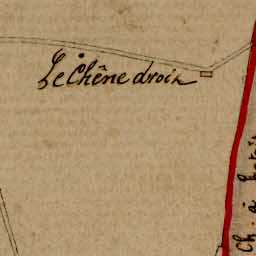 Le Chêne droix
Ch. à